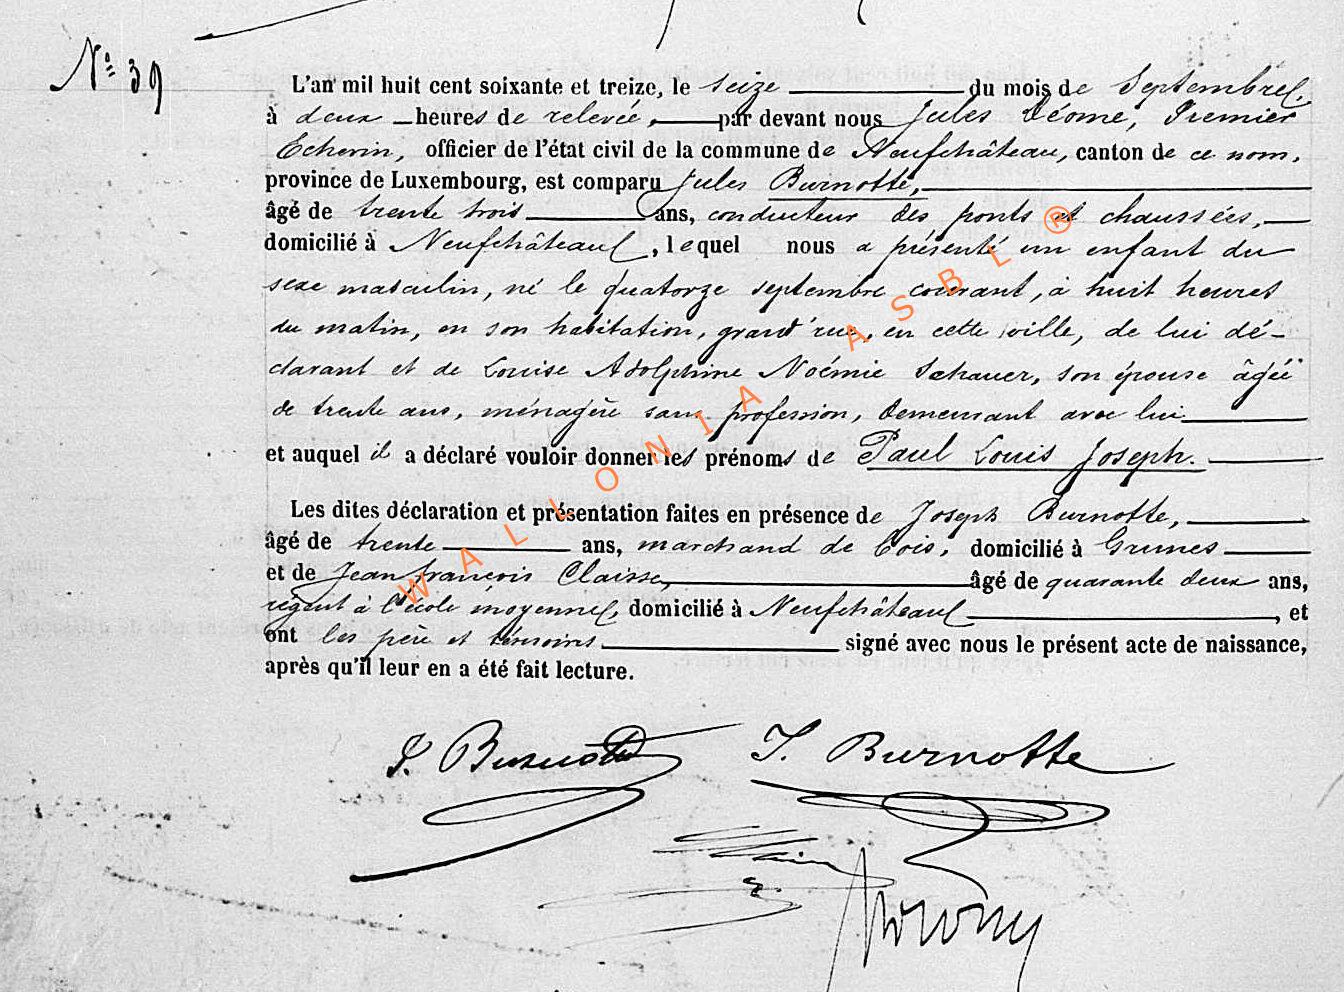 Nº 39
L'an mil huit cent soixante et treize, le seize du mois de Septembre
à deux heures de relevée, par devant nous Jules Déome, Premier
Echevin, officier de l'état civil de la commune de Neufchâteau, canton de ce nom,
province de Luxembourg, est comparu Jules Burnotte,
âgé de trente trois ans, conducteur des ponts et chaussées,
domicilié à Neufchâteau, lequel nous a présenté un enfant du
sexe masculin, né le quatorze septembre courant, à huit heures
du matin, en son habitation, grand'rue, en cette ville, de lui dé-
clarant et de Louise Adolphine Noémie Schauer, son épouse âgée
de trente ans, ménagère sans profession, demeurant avec lui
et auquel il a déclaré vouloir donner les prénoms de Paul Louis Joseph.
Les dites déclaration et présentation faites en présence de Joseph Burnotte,
âgé de trente ans, marchand de bois, domicilié à Grunes
et de Jean françois Claisse, âgé de quarante deux ans,
régent à l'école moyenne, domicilié à Neufchâteau, et
ont les père et témoins signé avec nous le présent acte de naissance,
après qu'il leur en a été fait lecture.
J. Burnotte J. Burnotte
WALLONIA ASBL ®